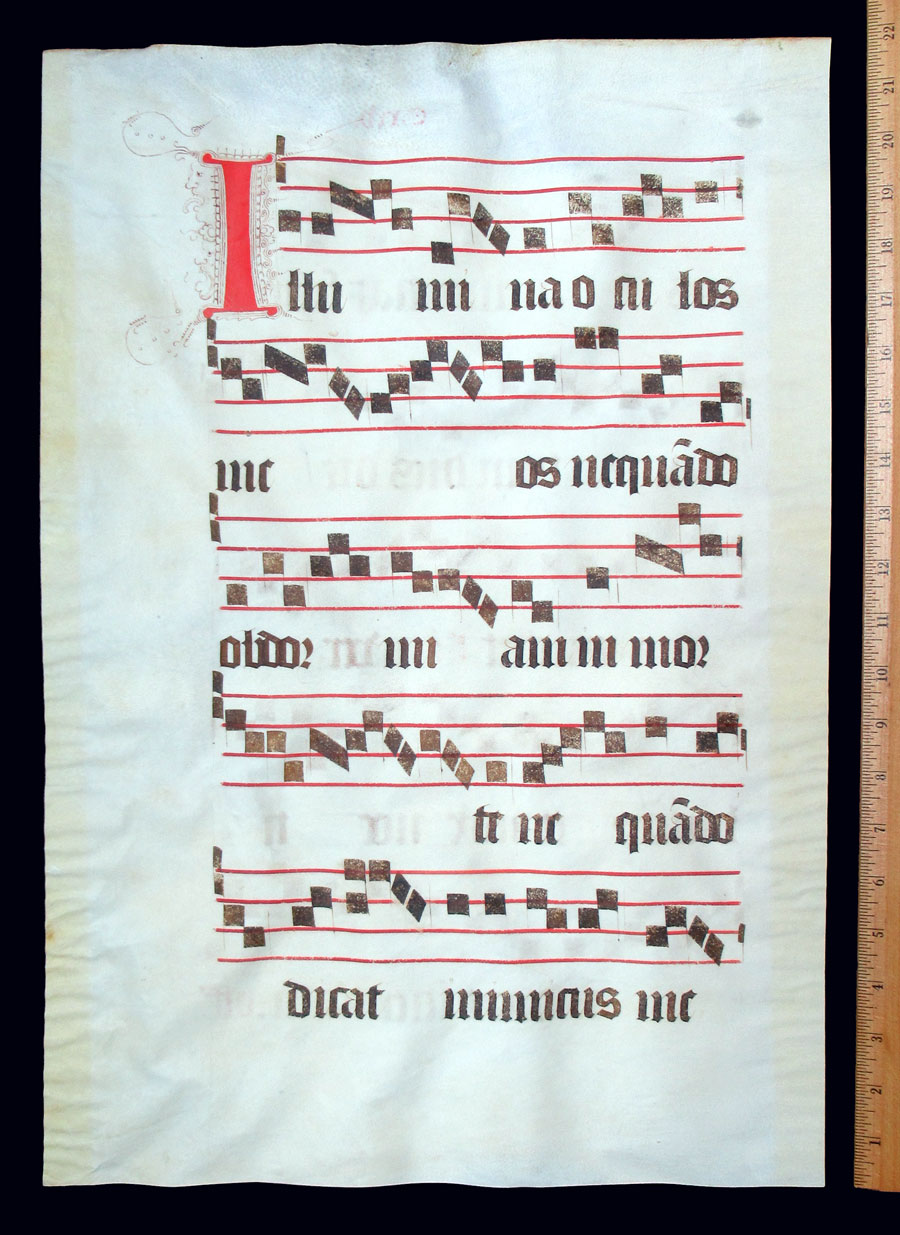 Illu mi na o cu los
me os nequãdo
obdor mi am in mor
te ne quãdo
dicat inimicus me
22
21
20
19
18
17
16
15
14
13
12
11
10
9
8
7
6
5
4
3
2
1